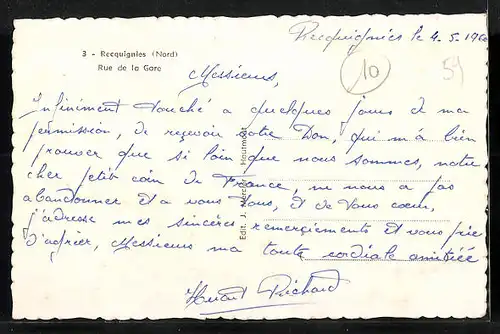 Recquignies le 4.5.196
3 - Recquignies (Nord)
Rue de la Gare
10
54
Messieurs,
Infiniment touché a quelques jours de ma
permission, de reçevoir votre Don, qui m'a bien
prouver que si loin que nous sommes, notre
cher petit coin de France, ne nous a pas
abandonner et a vous Tous, et de Vous cœur,
j'adresse mes sincères remerçiements et vous prie
d'agrier, Messieurs ma toute cordiale amitiée
Huart Richard
Edit. J. Marcha Hautmont